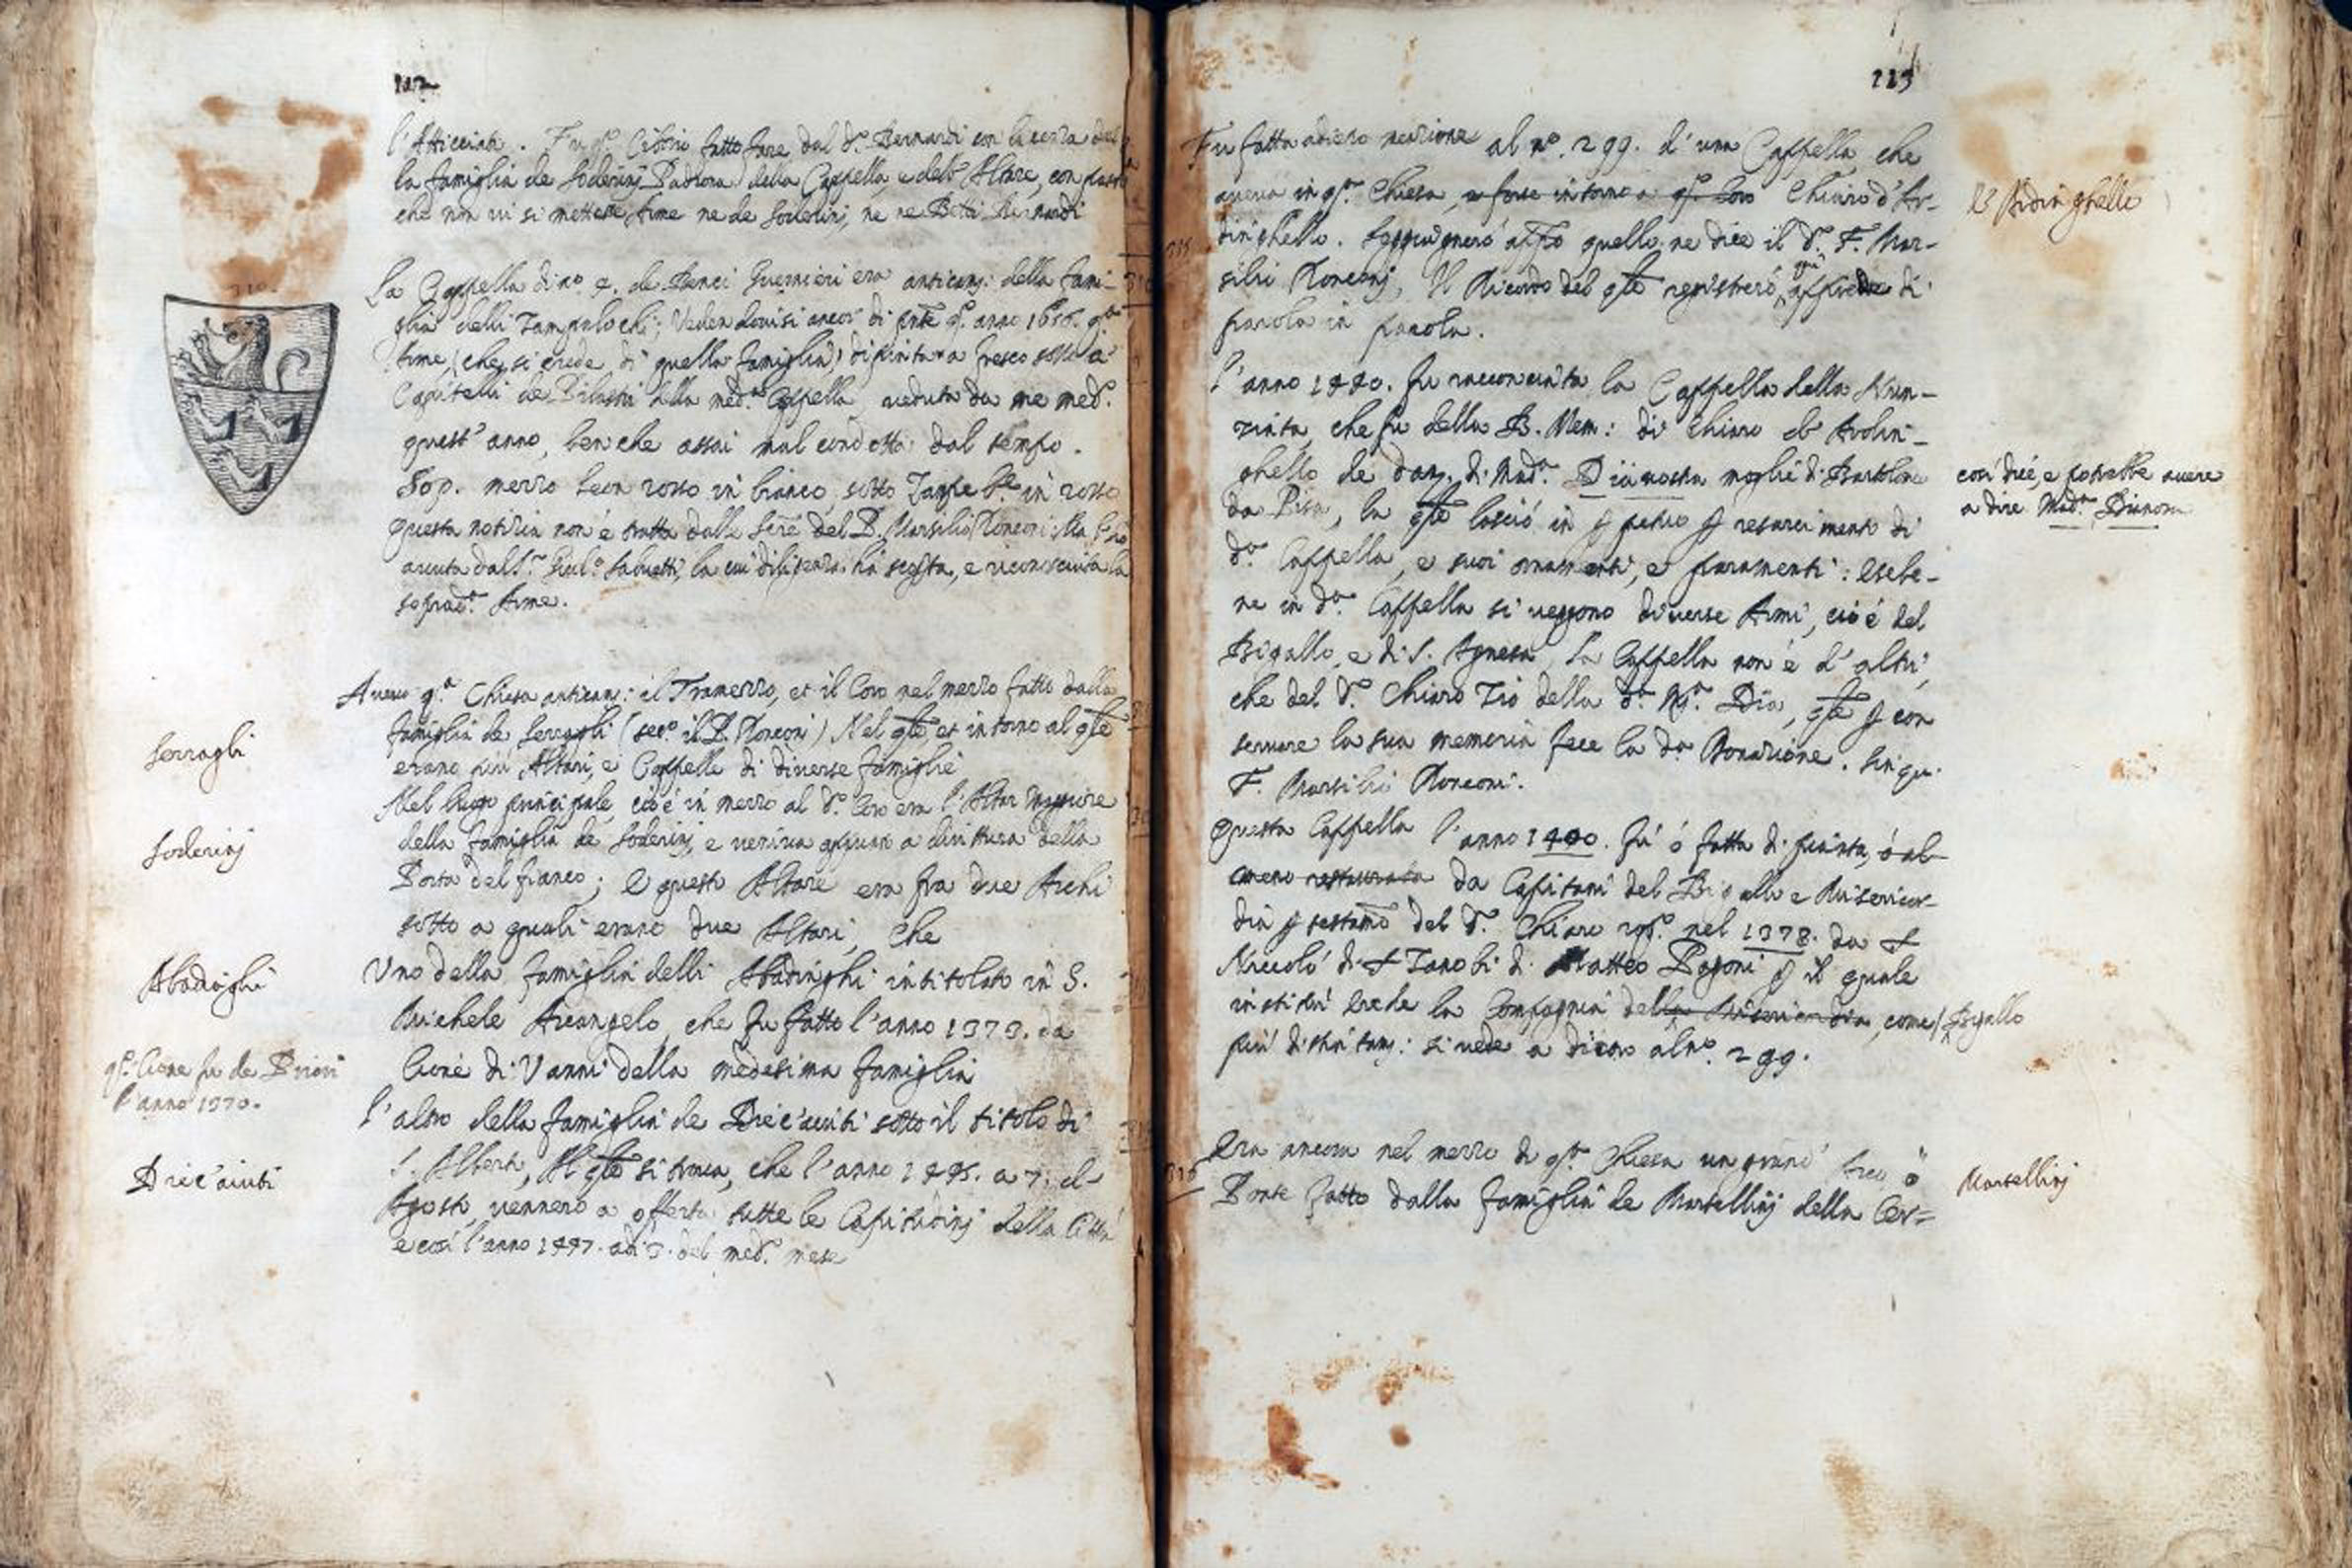 112
l'Atticciati. Fu q.º Ciborio fatto fare dal d.º Bernardi con licenza del
la famiglia de Soderinj Padrona della Cappella, e dell'Altare, con patto
che non vi si mettesse Arme ne de Soderinj, ne de Betti Bernardi
310.
La Cappella di nº 4. de Renci Guernieri era anticam: della fami-
glia delli Tanaglochi; Vedendovisi ancor di pnte q.º anno 1656. q.ª
Arme (che si crede di quella famiglia) dipinta a fresco sotto a
Capitelli de Pilastri della med.ª Cappella veduta da me med.º
quest'anno, benche assai mal condotta dal tempo.
Sop. mezzo Leon rosso in bianco, sotto in rosso
questa notizia non è tratta dalle del P. Marsilio Ronconi. Ma l'ho
avuta dal S.r la cui diligenza ha scoperta, e riconosciuta la
soprad.ª Arme.
Aveva q.ª Chiesa anticam: il Tramezzo, et il Coro nel mezzo fatto dalla
Serragli
famiglia de Serragli (sec.º il P. Ronconi) Nel qle, et intorno al qle
erano più Altari, e Cappelle di diverse famiglie
Nel luogo principale, cioè in mezzo al d.º Coro era l'Altar Maggiore
Soderinj
della famiglia de Soderinj, e veniva appunto a dirittura della
Porta del fianco; E questo Altare era fra due Archi
sotto a quali erano due Altari, che
Abadinghi
Uno della famiglia delli Abadinghi intitolato in S.
Michele Arcangelo, che fu fatto l'anno 1373. da
q.º Cione fu de Priori
l'anno 1370.
Cione di Vanni della medesima famiglia
l'altro della famiglia de Diec'aiuti sotto il titolo di
Diec'aiuti
S. Alberto, Al qle si trova, che l'anno 1445. a 7. d'
Agosto vennero a offerta tutte le Capitudinj della Città
e così l'anno 1447. adi 3. del med.º mese
113
Fu fatta adietro menzione al nº. 299. d'una Cappella che
aveva in q.ª Chiesa, e forse intorno a q.º Coro Chiaro d'Ar-
Ardinghelli
dinghello. Soggiugnerò app.º quello ne dice il d.º F. Mar-
silio Ronconj, Il Ricordo del qle registrerò qui appiede di
parola in parola.
l'anno 1440. fu racconciata la Cappella della Nun-
ziata, che fu della B. Mem: di Chiaro d'Ardin-
ghello de dan. di Mad.ª Dianosta moglie di Bartolomeo
così dice, e potrebbe avere
a dire Mad.ª Dianora
da Pisa, la qle lasciò in ꝑpetuo ꝑ resarcimento di
d.ª Cappella, e suoi ornamenti, e paramenti: Esebe-
ne in d.ª Cappella si veggono diverse Armi, cioè del
Bigallo, e di S. Agnesa, La Cappella non è d'altri,
che del d.º Chiaro Zio della d.ª M.ª Dia, qle ꝑ con
servare la sua memoria fece la d.ª Donazione. Sin qui
F. Marsilio Ronconi.
Questa Cappella l'anno 1400. fù ò fatta di pianta, ò al-
meno restaurata da Capitani del Bigallo e Misericor-
dia ꝑ testamº del d.º Chiaro rog.º nel 1378. da S
Niccolò di S Zanobi di Matteo Pagoni ꝑ il quale
instituì Erede la Compagnia della Misericordia, come / Bigallo
più distintam: si vede a dietro al nº. 299.
Era ancora nel mezzo di q.ª Chiesa un grand' Arco ò
Martellinj
Ponte fatto dalla famiglia de Martellinj della Cer=